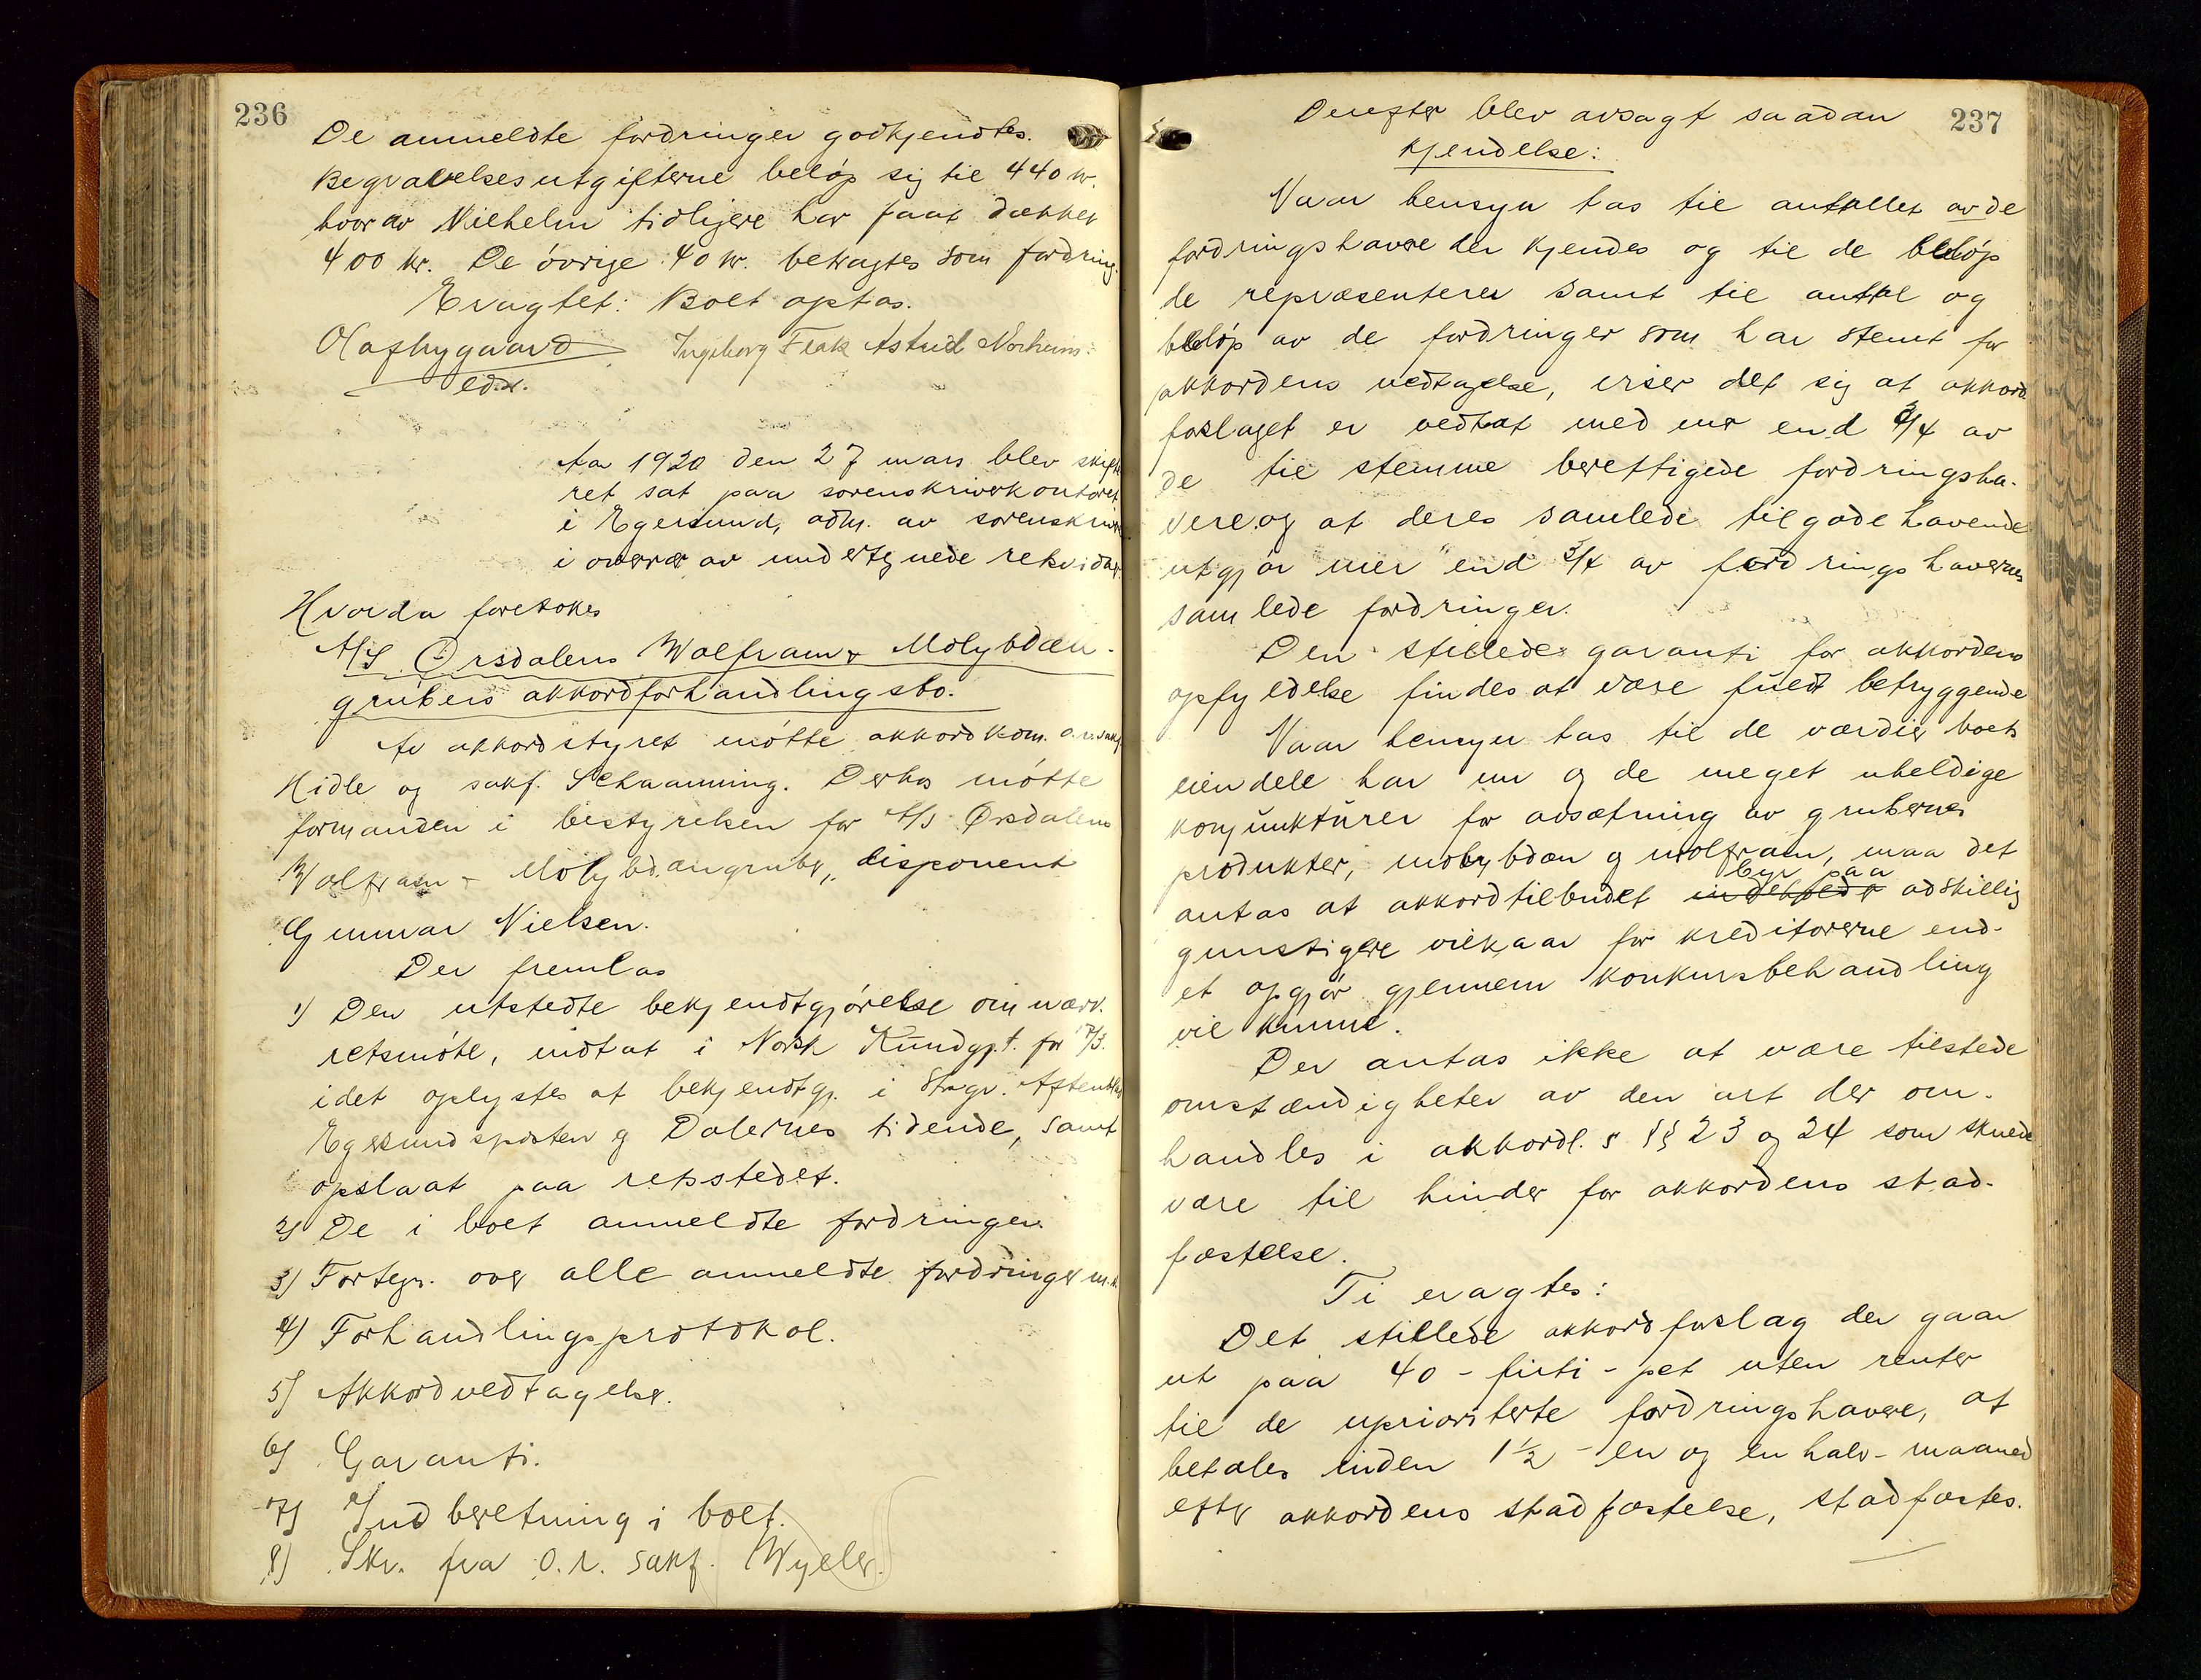 236
De anmeldte fordringer godkjendtes.
Begravelsesutgifterne beløp sig til 440 kr.
hvorav Vilhelm tidligere har faat dækket
400 kr. De øvrige 40 kr. betragtes som fordring.
Eragtet: Boet optas.
Hafthygaard Ingeborg Fleak Astrid Norheim.
ed.v.
Aar 1920 den 27 mars blev skifte
ret sat paa sorenskriverkontoret
i Egersund, adm. av sorenskriver
i overvær av undertegnede retsvidner.
Hvorda foretokes
A/S Ørsdalens Wolfram & Molybdæn-
grubers akkordforhandlingsbo.
Av akkordstyret møtte akkordkom. o.r.sakf.
Hidle og sakf. Schaanning. Derhos møtte
formanden i bestyrelsen for A/S Ørsdalens
Wolfram - Molybdængruber, disponent
Gunnar Nielsen.
Der fremlas
1) Den utstedte bekjendtgjørelse om nærv.
retsmøte, indtat i Norsk Kundgj.t. for 17/3.
idet oplystes at bekjendtgj. i Stvgr. Aftenblad
Egersundsposten og Dalernes tidende, samt
opslaat paa retsstedet.
2) De i boet anmeldte fordringer.
3) Fortegn. over alle anmeldte fordringer m.v.
4) Forhandlingsprotokol.
5) Akkordvedtagelse.
6) Garanti.
7) Indberetning i boet.
8) Skr. fra o.r. sakf. Wyller.
237
Derefter blev avsagt saadan
kjendelse:
Naar hensyn tas til antallet av de
fordringshavere der kjendes og til de beløp
de repræsenterer samt til antal og
beløp av de fordringer som har stemt for
akkordens vedtagelse, viser det sig at akkord
forslaget er vedtat med mer end 3/4 av
de til stemme berettigede fordringsha-
vere og at deres samlede tilgodehavende
utgjør mer end 3/4 av fordringshavernes
samlede fordringer.
Den stillede garanti for akkordens
opfyldelse findes at være fuldt betryggende
Naar hensyn tas til de værdier boets
eiendele har nu og de meget uheldige
konjunkturer for avsætning av grubernes
produkter, molybdæn og wolfram, maa det
byr paa
antas at akkordtilbudet indeholder adskillig
gunstigere vilkaar for kreditorerne end
et opgjør gjennem konkursbehandling
vil kunne.
Der antas ikke at være tilstede
omstændigheter av den art der om-
handles i akkordl. s §§ 23 og 24 som skulde
være til hinder for akkordens stad-
fæstelse.
Ti eragtes:
Det stillede akkordforslag der gaar
ut paa 40 - firti - pct uten renter
til de upriorterte fordringshavere, at
betales inden 1½ - en og en halv - maaned
efter akkordens stadfæstelse, stadfæstes.